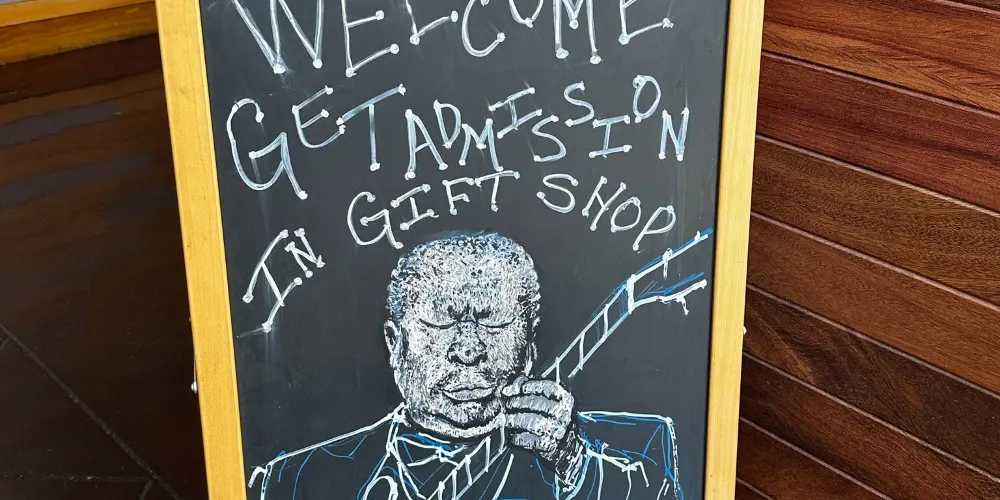 WELCOME
GET ADMISSION
IN GIFT SHOP